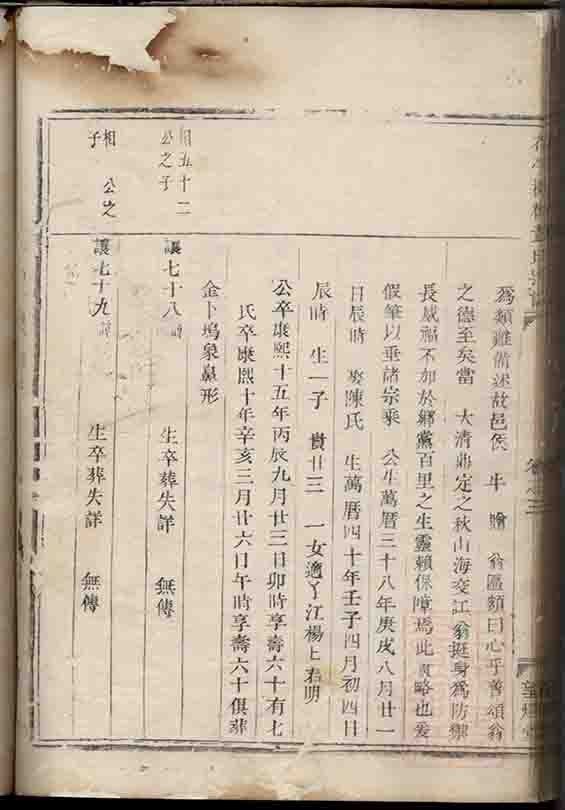 爲類難備述故邑侯 牛 贈 翁匾額曰心乎善頌翁
之德至矣當 大清鼎定之秋山海交江翁挺身爲防禦
長威福不加於鄉黨百里之生靈賴保障焉此 略也爰
假筆以垂諸宗乘 公生萬曆三十八年庚戌八月廿一
日辰時 娶陳氏 生萬曆四十年壬子四月初四日
辰時 生一子 貴廿三 一女適丫江楊 君明
公卒康熙十五年丙辰九月廿三日卯時享壽六十有七
氏卒康熙十年辛亥三月廿六日午時享壽六十俱葬
金卜塢象鼻形
相五十二
公之子
讓七十八 諱 生卒葬失詳 無傳
相 公之
子
讓七十九 諱 生卒葬失詳 無傳